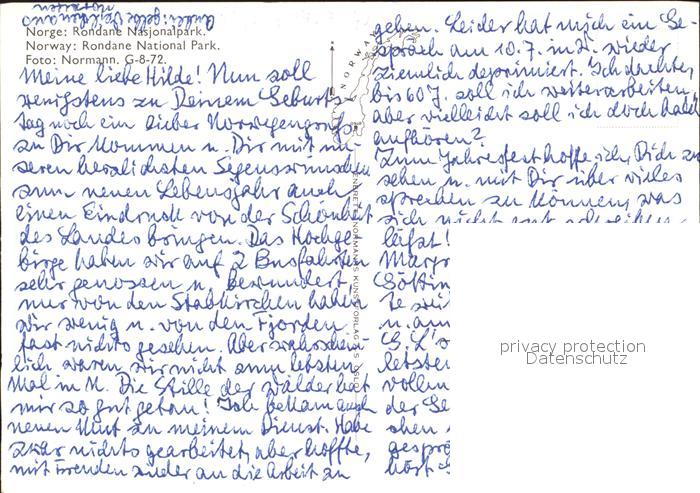 Anbei: gelbe Veilchen aus
Norwegen
Norge: Rondane Nasjonalpark.
Norway: Rondane National Park.
Foto: Normann. G-8-72.
NORWAY
Meine liebe Hilde! Nun soll
wenigstens zu Deinem Geburts-
tag noch ein lieber Norwegengruß
zu Dir kommen u. Dir mit un-
seren herzlichsten Segenswünschen
zum neuen Lebensjahr auch
einen Eindruck von der Schönheit
des Landes bringen. Das Hochge-
birge haben wir auf 2 Busfahrten
sehr genossen u. bewundert,
nur von den Stabkirchen haben
wir wenig u. von den Fjorden
fast nichts gesehen. Aber wahrschein-
lich waren wir nicht zum letzten
Mal in N. Die Stille der Wälder hat
mir so gut getan! Ich bekam auch
neuen Mut zu meinem Dienst. Habe
zwar nichts gearbeitet, aber hoffte,
mit Freuden wieder an die Arbeit zu
gehen. Leider hat mich ein Ge-
spräch am 10.7. in H. wieder
ziemlich deprimiert. Ich dachte,
bis 60 J. soll ich weiterarbeiten,
aber vielleicht soll ich doch bald
aufhören?
Zum Jahresfest hoffe ich, Dich zu
sehen u. mit Dir über vieles
sprechen zu können, was
sich nicht gut schreiben
läßt!
Götti
u. am
letzte
vollen
der Ge
gesprä
privacy protection
Datenschutz